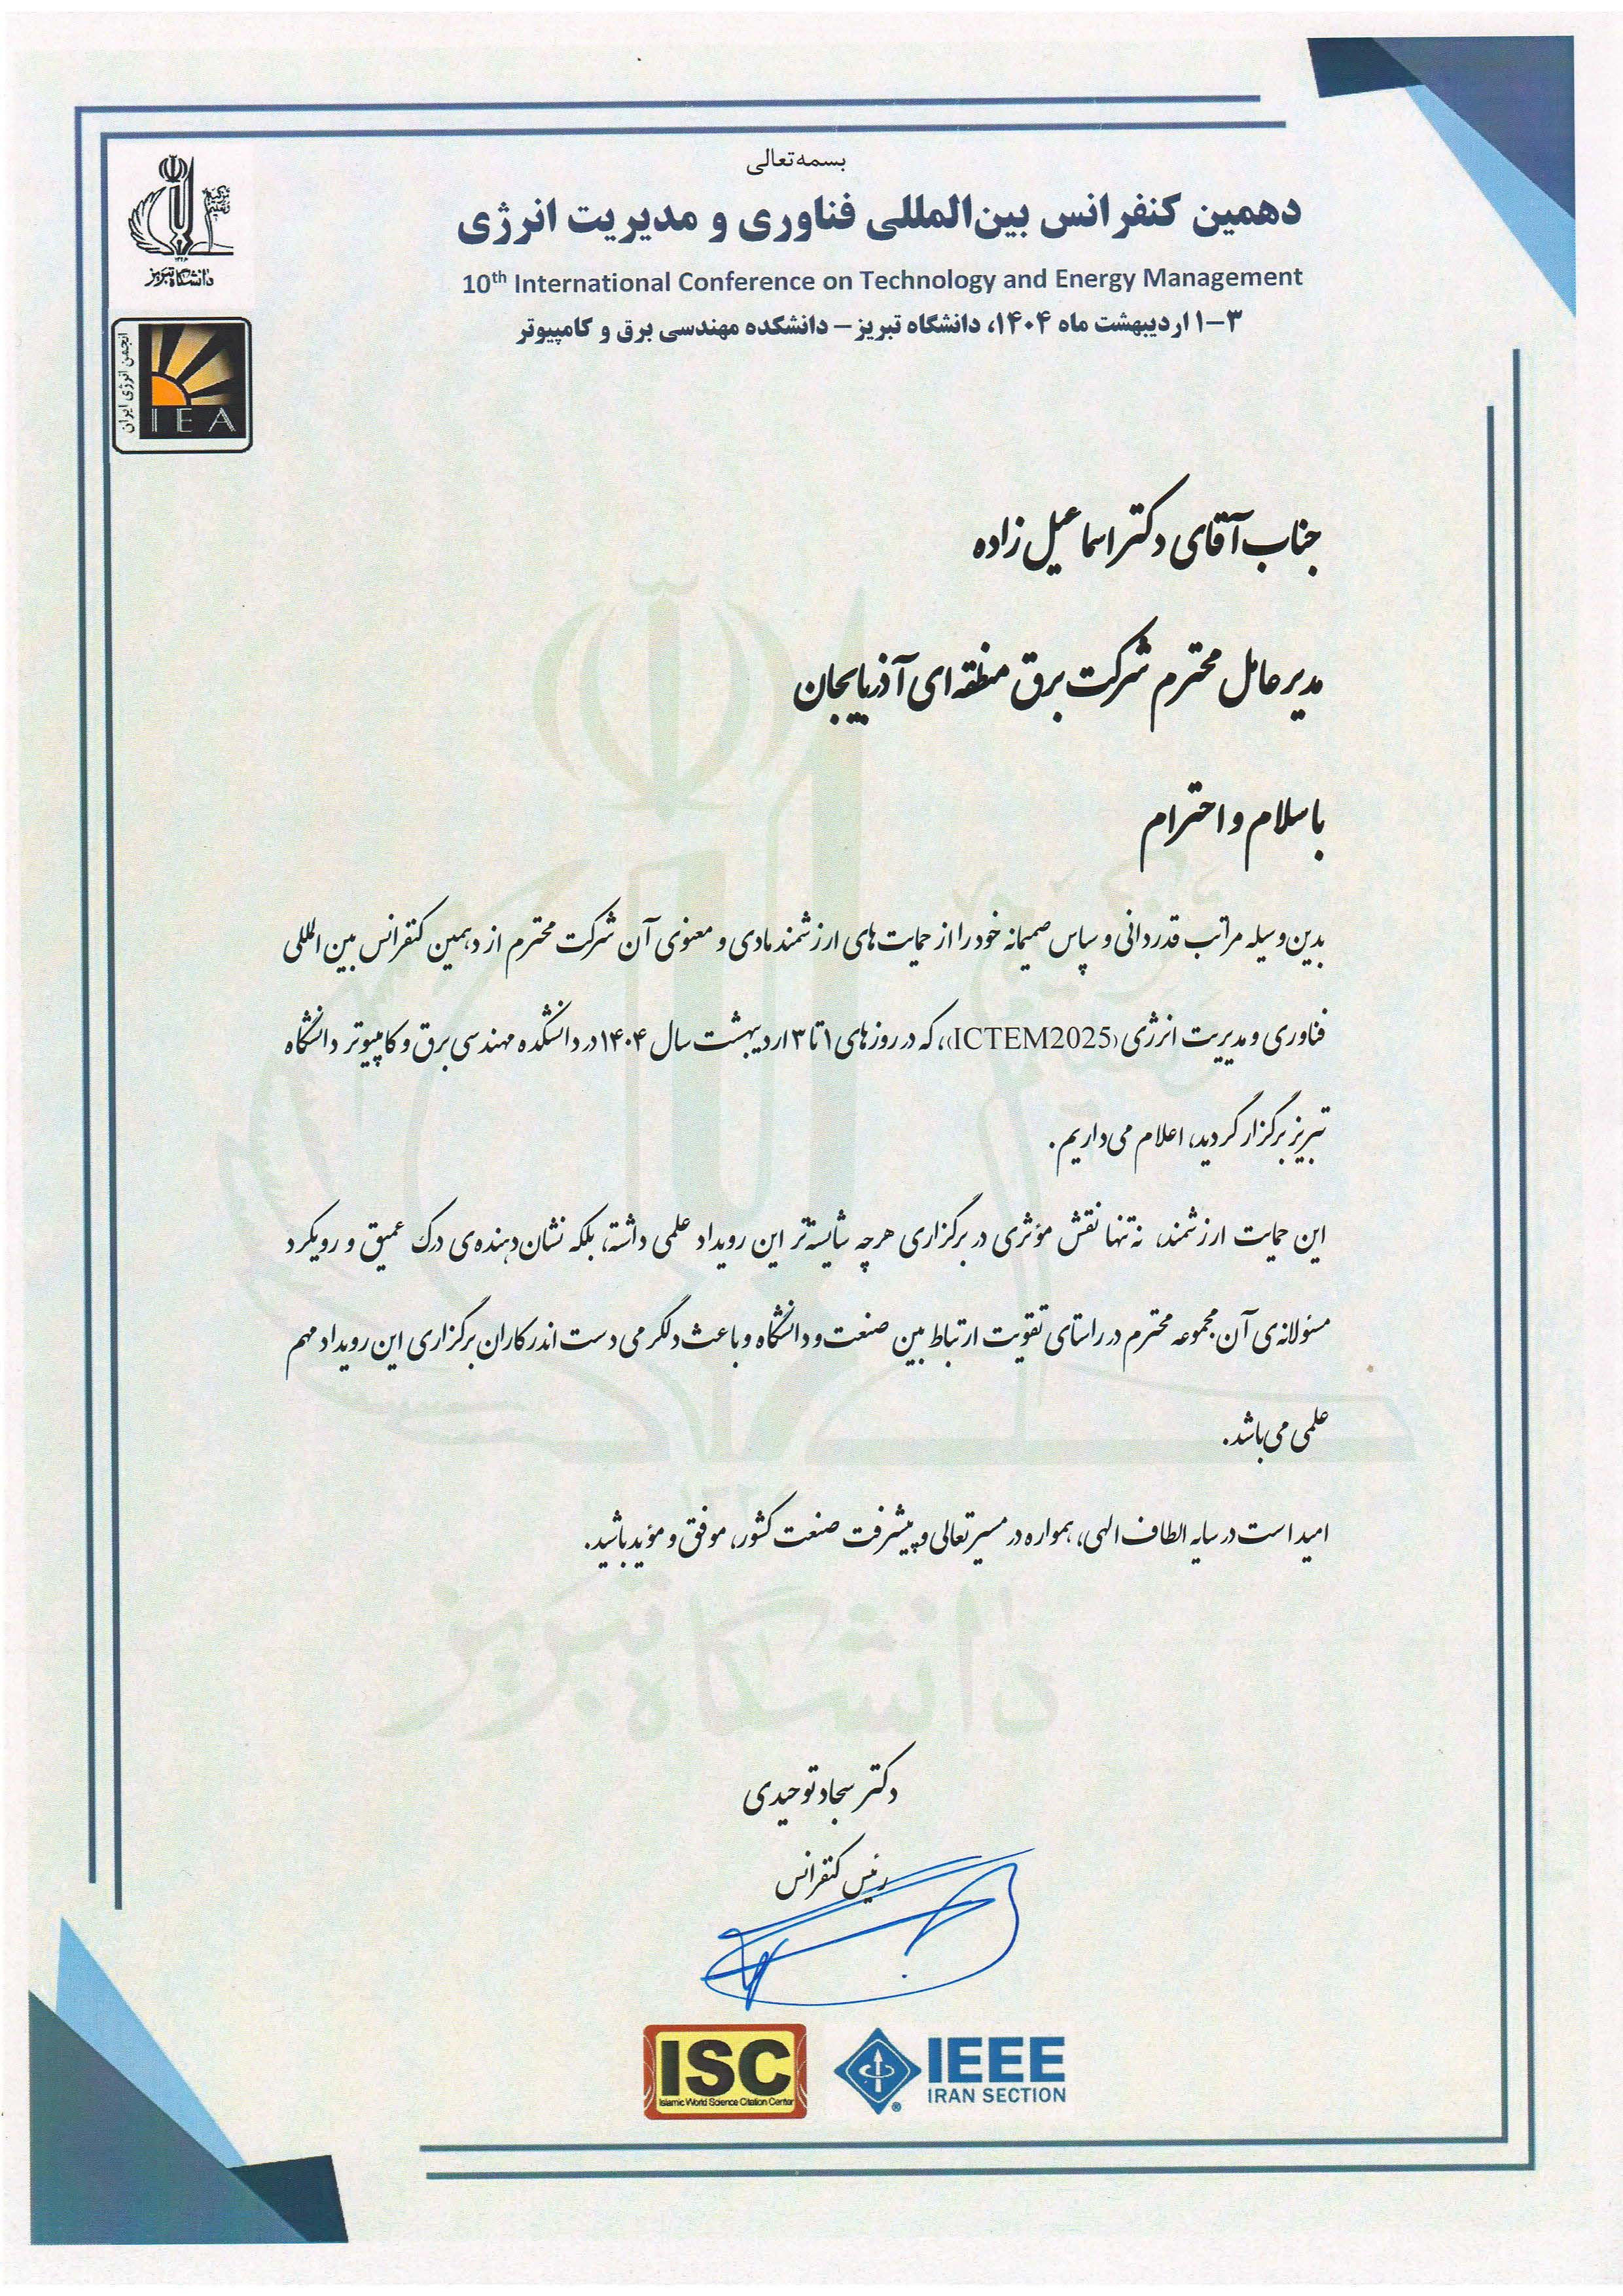 بسمه‌تعالی
دهمین کنفرانس بین‌المللی فناوری و مدیریت انرژی
10th International Conference on Technology and Energy Management
۱-۳ اردیبهشت ماه ۱۴۰۴، دانشگاه تبریز- دانشکده مهندسی برق و کامپیوتر
دانشگاه تبریز
انجمن انرژی ایران
IEA
جناب آقای دکتر اسماعیل زاده
مدیرعامل محترم شرکت برق منطقه ای آذربایجان
با سلام و احترام
بدین وسیله مراتب قدردانی و سپاس صمیمانه خود را از حمایت های ارزشمند مادی و معنوی آن شرکت محترم از دهمین کنفرانس بین المللی
فناوری و مدیریت انرژی (ICTEM2025)، که در روزهای ۱ تا ۳ اردیبهشت سال ۱۴۰۴ در دانشکده مهندسی برق و کامپیوتر دانشگاه
تبریز برگزار گردید، اعلام می داریم.
این حمایت ارزشمند، نه تنها نقش مؤثری در برگزاری هرچه شایسته تر این رویداد علمی داشته، بلکه نشان دهنده ی درک عمیق و رویکرد
مسئولانه ی آن مجموعه محترم در راستای تقویت ارتباط بین صنعت و دانشگاه و باعث دلگرمی دست اندرکاران برگزاری این رویداد مهم
علمی می باشد.
امید است در سایه الطاف الهی، همواره در مسیر تعالی و پیشرفت صنعت کشور، موفق و مؤید باشید.
دانشگاه تبریز
دکتر سجاد توحیدی
رئیس کنفرانس
ISC
Islamic World Science Citation Center
IEEE
IRAN SECTION